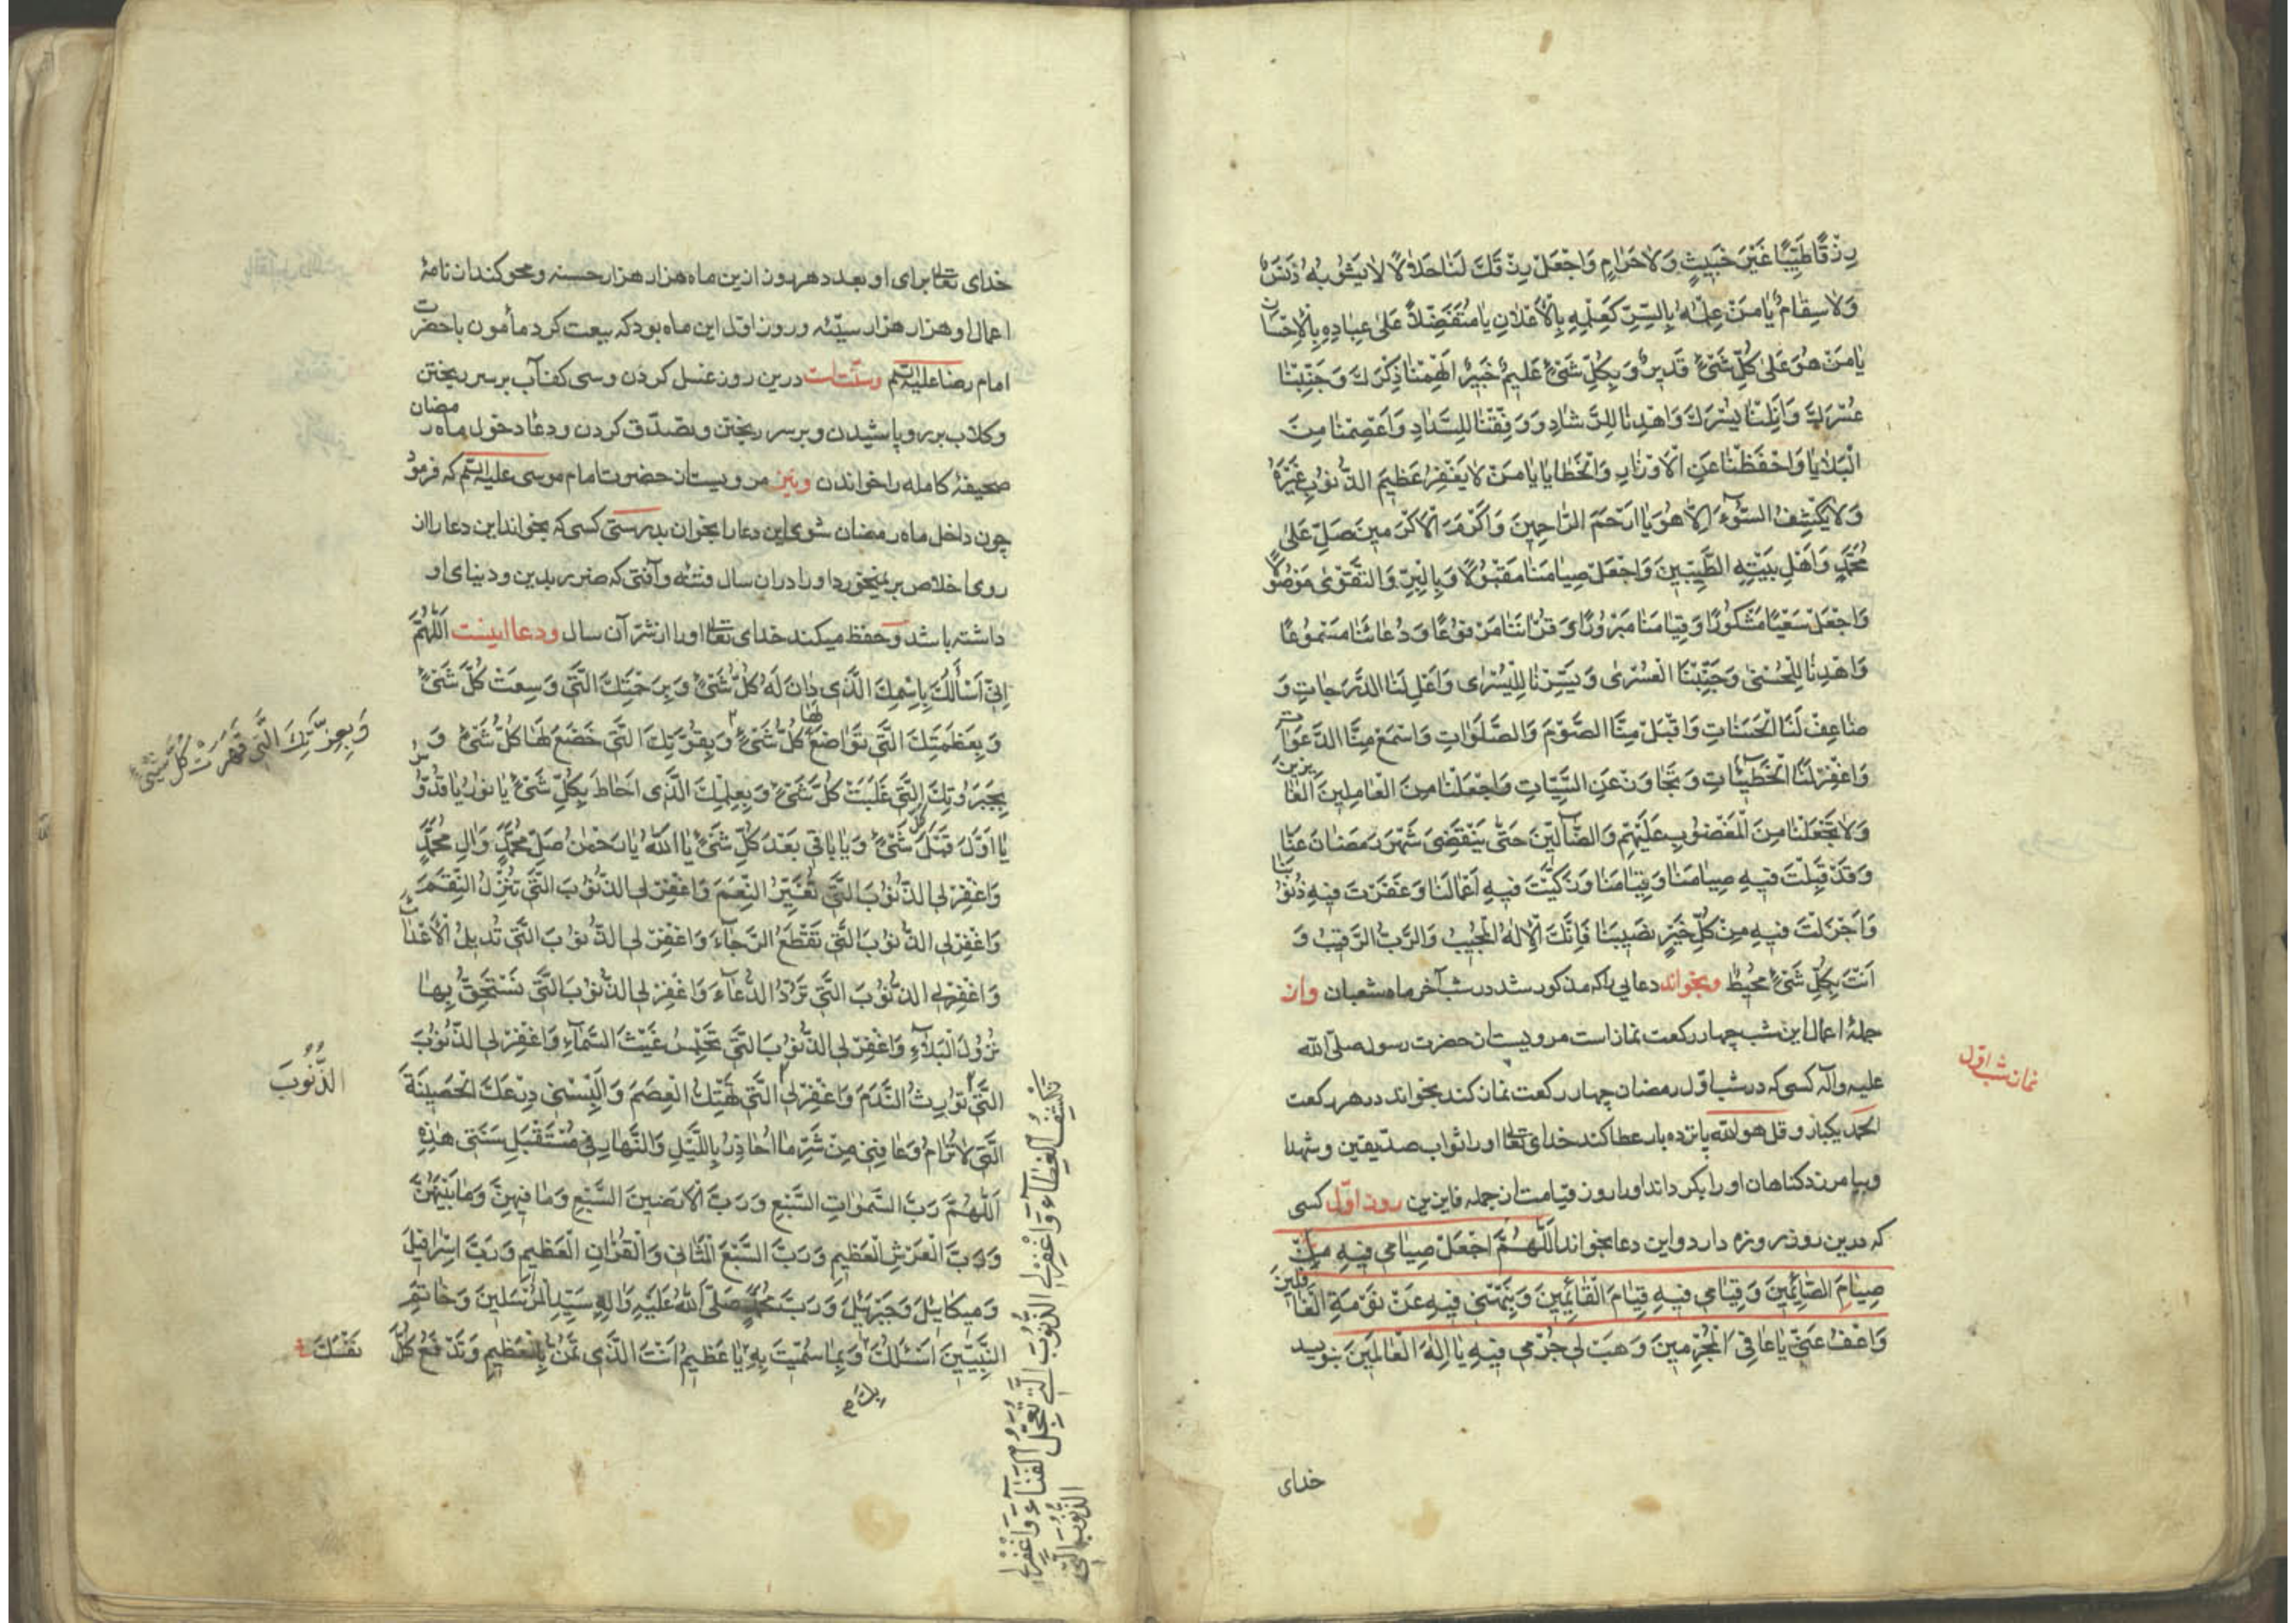 رِزْقًا طَيِّبًا غَيْرَ خَبيثٍ وَلَا حَرَامٍ وَاجْعَلْ رِزْقَكَ لَنَا حَلَالًا لَا يَشُوبُهُ دَنَسٌ
وَلَا سِقَامٌ يَا مَنْ عِلْمُهُ بِالسِّرِّ كَعِلْمِهِ بِالْأَعْلَانِ يَا مُتَفَضِّلًا عَلَىٰ عِبَادِهِ بِالْإِحْسَانِ
يَا مَنْ هُوَ عَلَىٰ كُلِّ شَىْءٍ قَديرٌ وَبِكُلِّ شَىْءٍ عَليمٌ خَبيرٌ اَلْهِمْنَا ذِكْرَكَ وَجَنِّبْنَا
عُسْرَكَ وَاَنِلْنَا يُسْرَكَ وَاهْدِنَا لِلرَّشَادِ وَوَفِّقْنَا لِلسَّدَادِ وَاعْصِمْنَا مِنَ
الْبَلَايَا وَاحْفَظْنَا عَنِ الْاَوْزَارِ وَالْخَطَايَا يَا مَنْ لَا يَغْفِرُ عَظِيمَ الذُّنُوبِ غَيْرُهُ
وَلَا يَكْشِفُ السُّوءَ اِلَّا هُوَ يَا اَرْحَمَ الرَّاحِمِينَ وَاَكْرَمَ الْاَكْرَمينَ صَلِّ عَلىٰ
مُحَمَّدٍ وَاَهْلِ بَيْتِهِ الطَّيِّبِينَ وَاجْعَلْ صِيَامَنَا مَقْبُولًا وَبِالْبِرِّ وَالتَّقْوٰى مَوْصُولًا
وَاجْعَلْ سَعْيَنَا مَشْكُورًا وَقِيَامَنَا مَبْرُورًا وَقُرْانَنَا مَرْفُوعًا وَدُعَائَنَا مَسْمُوعًا
وَاهْدِنَا لِلْحُسْنىٰ وَجَنِّبْنَا الْعُسْرىٰ وَيَسِّرْنَا لِلْيُسْرٰى وَاَعْلِ لَنَا الدَّرَجَاتِ وَ
ضَاعِفْ لَنَا الْحَسَنَاتِ وَاقْبَلْ مِنَّا الصَّوْمَ وَالصَّلَوَاتِ وَاسْمَعْ مِنَّا الدَّعَوَاتِ
وَاغْفِرْ لَنَا الْخَطِيئَاتِ وَتَجَاوَزْ عَنِ السَّيِّئَاتِ وَاجْعَلْنَا مِنَ الْعَامِلِينَ الْفَائِزِينَ
وَلَا تَجْعَلْنَا مِنَ الْمَغْضُوبِ عَلَيْهِمْ وَالضَّالِّينَ حَتّٰى يَنْقَضِيَ شَهْرُ رَمَضَانَ عَنَّا
وَقَدْ قَبِلْتَ فِيهِ صِيَامَنَا وَقِيَامَنَا وَزَكَّيْتَ فِيهِ اَعْمَالَنَا وَغَفَرْتَ فِيهِ ذُنُوبَنَا
وَاَجْزَلْتَ فِيهِ مِنْ كُلِّ خَيْرٍ نَصِيبَنَا فَاِنَّكَ الْاِلٰهُ الْمُجِيبُ وَالرَّبُّ الرَّقِيبُ وَ
اَنْتَ بِكُلِّ شَىْءٍ مُحِيطٌ وبخواند دعايى را كه مذكور شد در شب آخر ماه شعبان واز
جملهٔ اعمال اين شب چهار ركعت نماز است مرويست از حضرت رسول صلى الله
نماز شب اول
عليه وآله كسى كه در شب اول رمضان چهار ركعت نماز كند بخواند در هر ركعت
الحمد يكبار و قل هو الله پانزده بار عطا كند خداى تعالى او را ثواب صديقين وشهدا
وبيامرزد گناهان او را بگرداند او را روز قيامت از جمله فايزين روز اوّل كسى
كه درين روز روزه دارد واين دعا بخواند اَللّٰهُمَّ اجْعَلْ صِيَامى فِيهِ مِنْ
صِيَامِ الصَّائِمِينَ وَقِيَامى فِيهِ قِيَامَ الْقَائِمِينَ وَنَبِّهْنى فِيهِ عَنْ نَوْمَةِ الْغَافِلِينَ
وَاعْفُ عَنّى يَا عَافِيَ الْمُجْرِمِينَ وَهَبْ لى جُرْمى فِيهِ يَا اِلٰهَ الْعَالَمِينَ بنويسد
خداى
خداى تعالى براى او بعدد هر روز ازين ماه هزار هزار حسنه ومحو كند از نامهٔ
اعمال او هزار هزار سيّئه وروز اول اين ماه بود كه بيعت كرد مأمون با حضرت
امام رضا عليه السلم وسنّت است درين روز غسل كردن وسى كف آب بر سر ريختن
وگلاب بر رو پاشيدن وبر سر ريختن وتصدّق كردن ودعاء دخول ماه رمضان
صحيفهٔ كامله را خواندن ونيز مرويست از حضرت امام موسى عليه السلم كه فرمود
چون داخل ماه رمضان شوى اين دعا را بخوان بدرستى كسى كه بخواند اين دعا را از
روى اخلاص بر نميخورد او را در آن سال فتنه وآفتى كه ضرر بدين ودنياى او
داشته باشد وحفظ ميكند خداى تعالى او را از شرّ آن سال ودعا اينست اَللّٰهُمَّ
اِنّى اَسْأَلُكَ بِاسْمِكَ الَّذى دَانَ لَهُ كُلُّ شَىْءٍ وَبِرَحْمَتِكَ الَّتى وَسِعَتْ كُلَّ شَىْءٍ
وَبِعَظَمَتِكَ الَّتى تَوَاضَعَ لَهَا كُلُّ شَىْءٍ وَبِقُوَّتِكَ الَّتى خَضَعَ لَهَا كُلُّ شَىْءٍ وَ
وَبِعِزَّتِكَ الَّتى قَهَرَتْ كُلَّ شَيْءٍ
بِجَبَرُوتِكَ الَّتى غَلَبَتْ كُلَّ شَىْءٍ وَبِعِلْمِكَ الَّذى اَحَاطَ بِكُلِّ شَىْءٍ يَا نُورُ يَا قُدُّوسُ
يَا اَوَّلَ قَبْلَ كُلِّ شَىْءٍ وَيَا بَاقِى بَعْدَ كُلِّ شَىْءٍ يَا اَللهُ يَا رَحْمٰنُ صَلِّ مُحَمَّدٍ وَالِ مُحَمَّدٍ
وَاغْفِرْ لى الذُّنُوبَ الَّتى تُغَيِّرُ النِّعَمَ وَاغْفِرْ لى الذُّنُوبَ الَّتى تُنْزِلُ النِّقَمَ
وَاغْفِرْ لى الذُّنُوبَ الَّتى تَقْطَعُ الرَّجَاءَ وَاغْفِرْ لى الذُّنُوبَ الَّتى تُدِيلُ الْاَعْدَاءَ
وَاغْفِرْ لى الذُّنُوبَ الَّتى تَرُدُّ الدُّعَاءَ وَاغْفِرْ لى الذُّنُوبَ الَّتى نَسْتَحِقُّ بِهَا
نُزُولَ الْبَلَاءِ وَاغْفِرْ لى الذُّنُوبَ الَّتى تَحْبِسُ غَيْثَ السَّمَاءِ وَاغْفِرْ لى الذُّنُوبَ
الَّتى تُورِثُ النَّدَمَ وَاغْفِرْ لى الَّتى تَهْتِكُ الْعِصَمَ وَاَلْبِسْنى دِرْعَكَ الْحَصِينَةَ
الذُّنُوبَ
الَّتى لَا تُرَامُ وَعَافِنى مِنْ شَرِّ مَا اُحَاذِرُ بِاللَّيْلِ وَالنَّهَارِ فى مُسْتَقْبَلِ سَنَتى هٰذِهِ
اَللّٰهُمَّ رَبَّ السَّمٰوَاتِ السَّبْعِ وَرَبَّ الْاَرَضِينَ السَّبْعِ وَمَا فِيهِنَّ وَمَا بَيْنَهُنَّ
وَرَبَّ الْعَرْشِ الْعَظِيمِ وَرَبَّ السَّبْعِ الْمَثَانى وَالْقُرْانِ الْعَظِيمِ وَرَبَّ اِسْرَافِيلَ
وَمِيكَايِلَ وَجَبْرَئِيلَ وَرَبَّ مُحَمَّدٍ صَلَّى اللهُ عَلَيْهِ وَالِهِ سَيِّدِ الْمُرْسَلِينَ وَخَاتَمِ
النَّبِيِّينَ اَسْئَلُكَ وَبِمَا سَمَّيْتَ بِهِ يَا عَظِيمُ اَنْتَ الَّذى تَمُنُّ بِالْعَظِيمِ وَتَدْفَعُ كُلَّ
نَفْسَكَ
تَكْشِفُ الْغِطَاءَ وَاغْفِرْ لى الذُّنُوبَ الَّتى تُعَجِّلُ الْفَنَاءَ وَاغْفِرْ لى
الذُّنُوبَ الَّتى